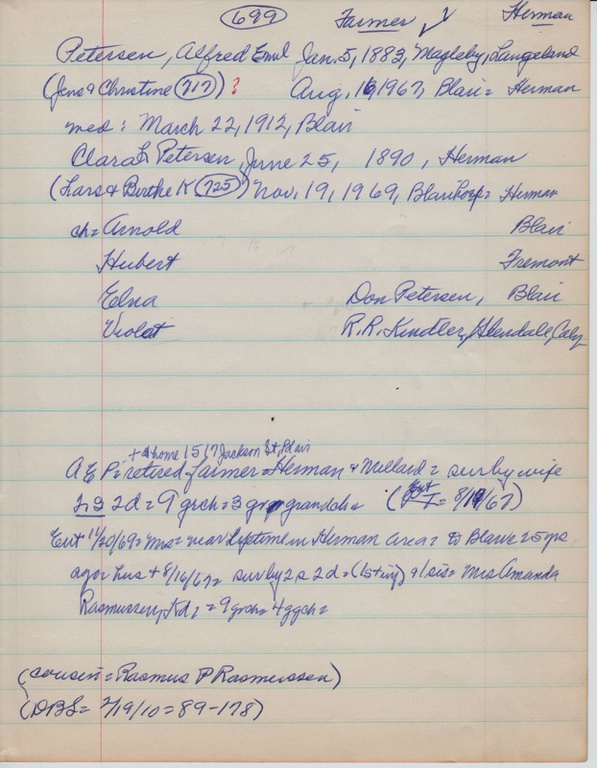 699 Farmer ✓ Herman
Petersen, Alfred Emil Jan. 5, 1883, Magleby, Langeland
(Jens & Christine 717) ? Aug. 16, 1967, Blair = Herman
med: March 22, 1912, Blair
Clara L Petersen, June 25, 1890, Herman
(Lars & Birthe K 725) Nov. 19, 1969, Blair Hosp = Herman
ch = Arnold Blair
Hubert Fremont
Elna Don Petersen, Blair
Violet R.R. Kindler, Glendale, Calif
+ at home 1517 Jackson St, Blair
A E P = retired farmer = Herman & Millard = sur by wife
2 s 2d = 9 grch = 3 gr grandch = (Ent = 8/19/67)
Ent 11/20/69 = Mrs = near lifetime in Herman area = to Blair 25 yrs
ago = hus + 8/16/67 = sur by 2 s 2d = (1st inf) & 1 sis = Mrs Amanda
Rasmussen, Kd, = 9 grch = 4 ggch =
(cousin = Rasmus P Rasmussen)
(DBS = 2/19/10 = 89-178)